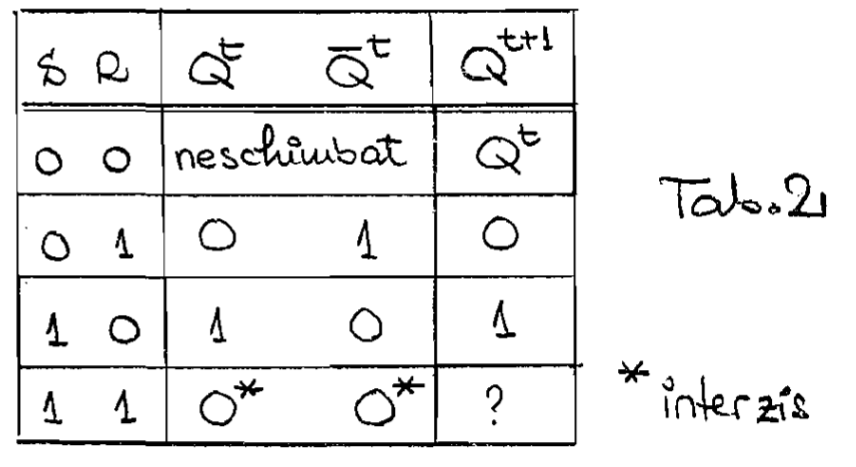 S R Qᵗ Q̄ᵗ Qᵗ⁺¹
0 0 neschimbat Qᵗ
0 1 0 1 0
1 0 1 0 1
1 1 0* 0* ?
Tab.2
* interzis